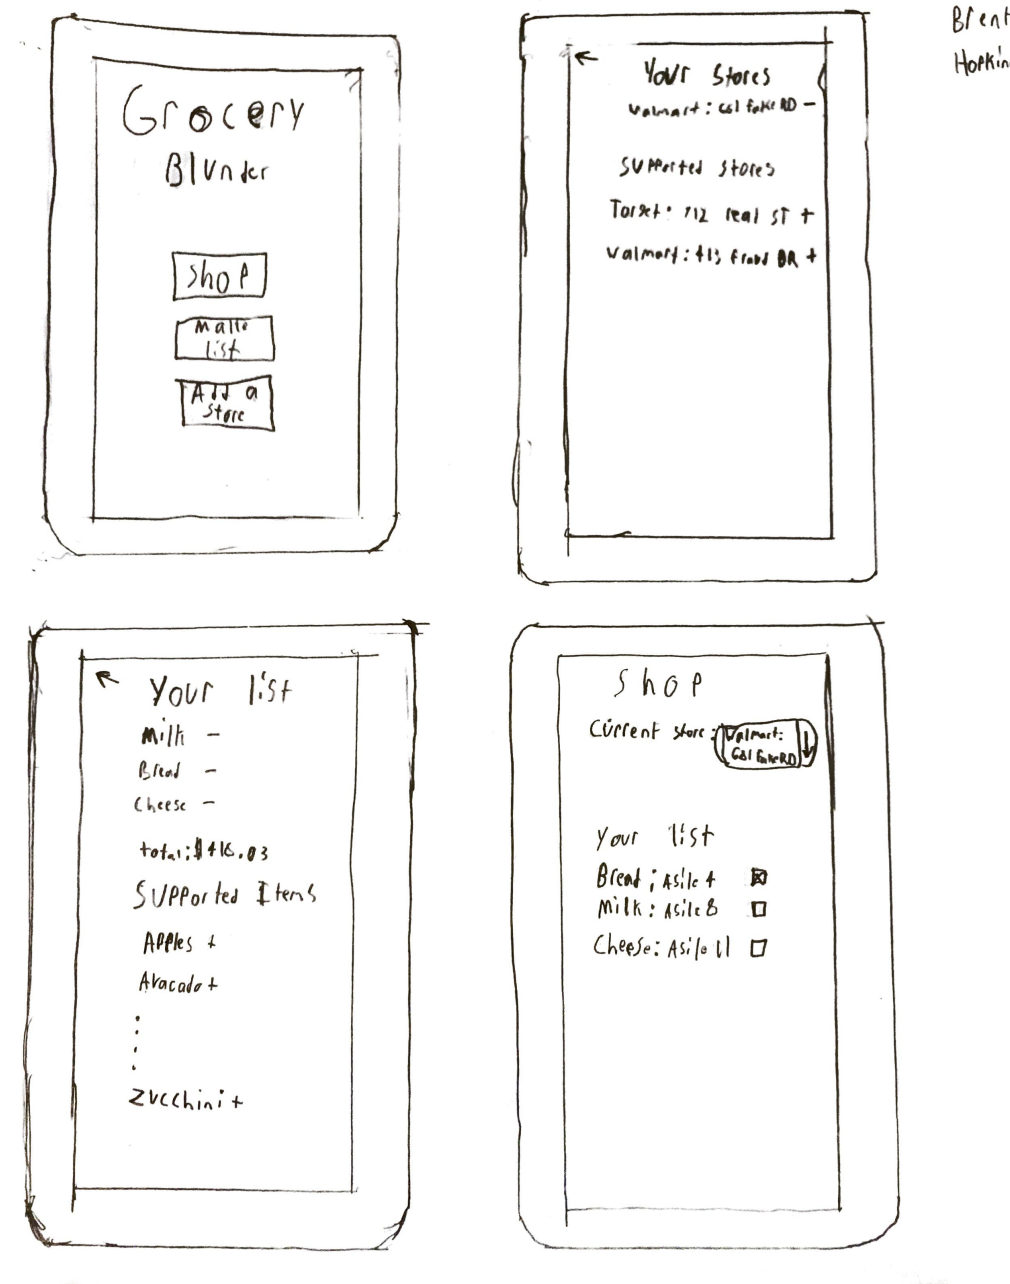 Brent
Hopkin
Grocery
Blunder
Shop
Make
list
Add a
Store
←
Your Stores
Walmart: 681 fake RD -
Supported stores
Target: 712 real ST +
Walmart: 413 fraud DR +
Your list
Milk -
Bread -
Cheese -
total: $418.03
Supported Items
Apples +
Avacado +
Zucchini +
Shop
Current store: Walmart:
681 fake RD ↓
Your list
Bread; Asile 4 ☒
Milk: Asile 8 ☐
Cheese: Asile 11 ☐